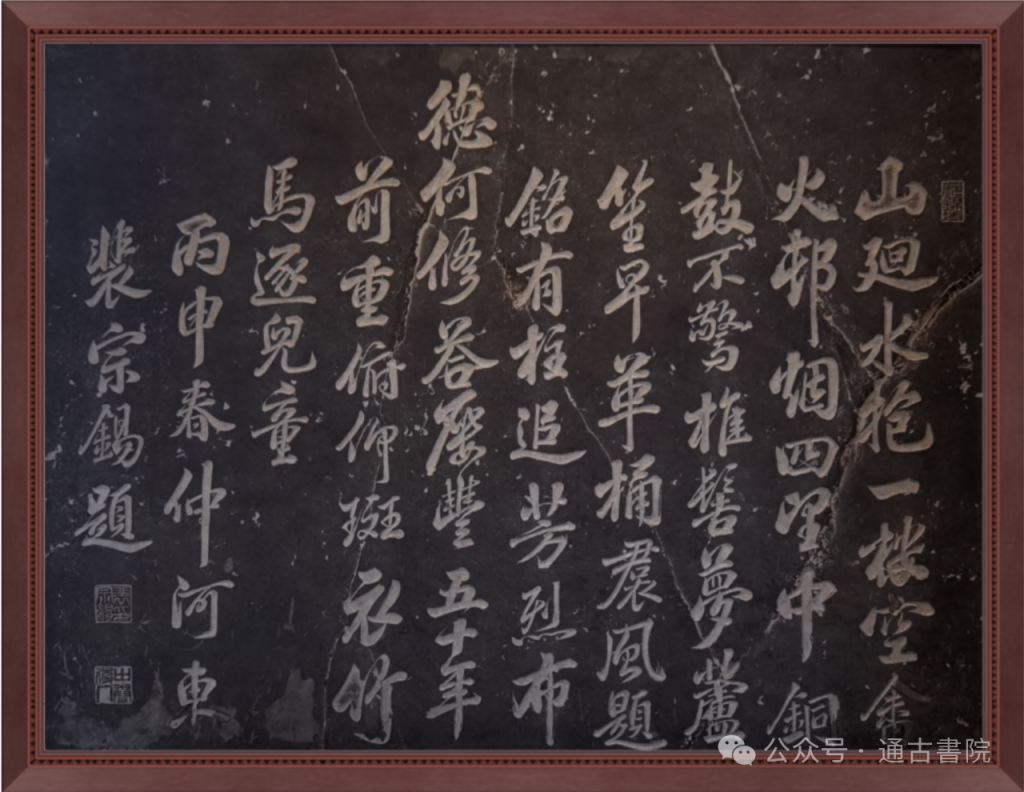 山廻水抱一楼空
火邨烟四望中銅
鼓不驚椎髻夢蘆
笙早革桶裠風題
銘有柱追芳烈布
德何修荅屢豐五十年
前重俯仰斑衣竹
馬逐兒童
丙申春仲河東
裴宗錫題
公众号·通古書院